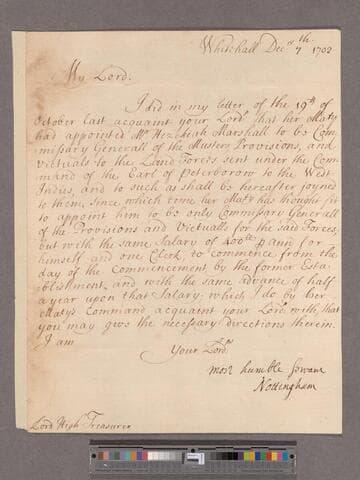 Whitehall Decr. 7th. 1702
My Lord.
I did in my letter of the 19th of
October last acquaint your Lordp. that her Maty
had appointed Mr. Hezekiah Marshall to be Com-
missary Generall of the Musters Provisions, and
Victuals to the Land Forces sent under the Com-
mand of the Earl of Peterborow to the West
Indies, and to such as shall be hereafter joyned
to them, since which time her Maty. has thought fit
to appoint him to be only Commissary Generall
of the Provisions and Victualls for the said Forces
but with the same Salary of 400li. p Ann for
himself and one Clerk, to commence from the
day of the Commencement by the former Esta-
blishment, and with the same advance of half
a year upon that Salary; which I do by her
Matys. Command acquaint your Lordp. with, that
you may give the necessary Directions therein.
I am
Your Lordps.
most humble Servant
Nottingham
Lord High Treasurer